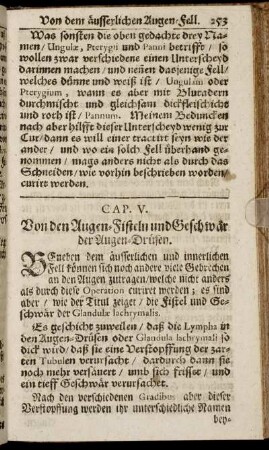 Von dem äusserlichen Augen-Fell. 253
Was sonsten die oben gedachte drey Na-
men / Ungulæ, Pterygii und Panni betrifft / so
wollen zwar verschiedene einen Unterscheyd
darinnen machen / und neñen dasjenige Fell /
welches dünne und weiß ist / Ungulam oder
Pterygium, wann es aber mit Blutadern
durchmischt und gleichsam dickfleischicht
und roth ist / Pannum. Meinem Beduncken
nach aber hilfft dieser Unterscheyd wenig zur
Cur / dann es will einer tractirt seyn wie der
ander / und wo ein solch Fell überhand ge-
nommen / mags anders nicht als durch das
Schneiden / wie vorhin beschrieben worden /
curirt werden.
CAP. V.
Von den Augen-Fisteln und Geschwär
der Augen-Drüsen.
BEneben dem äusserlichen und innerlichen
Fell können sich noch andere viele Gebrechen
an den Augen zutragen / welche nicht anders
als durch diese Operation curirt werden; es sind
aber / wie der Titul zeiget / die Fistel und Ge-
schwär der Glandulæ lachrymalis.
Es geschicht zuweilen / daß die Lympha in
den Augen-Drüsen oder Glandula lachrymali so
dick wird / daß sie eine Verstopffung der zar-
ten Tubulen verursacht / dardurch dann sie
noch mehr versäuert / umb sich frisset / und
ein tieff Geschwär verursachet.
Nach den verschiedenen Gradibus aber dieser
Verstopffung werden ihr unterschiedliche Namen
bey-